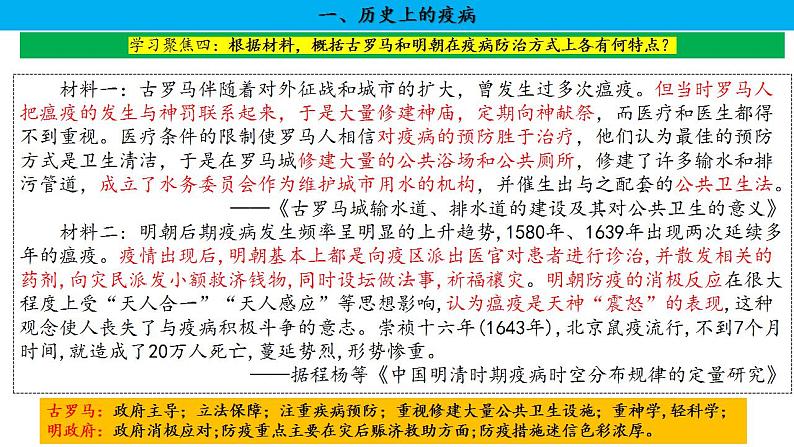 一、历史上的疫病
学习聚焦四：根据材料，概括古罗马和明朝在疫病防治方式上各有何特点？
材料一：古罗马伴随着对外征战和城市的扩大，曾发生过多次瘟疫。但当时罗马人
把瘟疫的发生与神罚联系起来，于是大量修建神庙，定期向神献祭，而医疗和医生都得
不到重视。医疗条件的限制使罗马人相信对疫病的预防胜于治疗，他们认为最佳的预防
方式是卫生清洁，于是在罗马城修建大量的公共浴场和公共厕所，修建了许多输水和排
污管道，成立了水务委员会作为维护城市用水的机构，并催生出与之配套的公共卫生法。
——《古罗马城输水道、排水道的建设及其对公共卫生的意义》
材料二：明朝后期疫病发生频率呈明显的上升趋势,1580年、1639年出现两次延续多
年的瘟疫。疫情出现后,明朝基本上都是向疫区派出医官对患者进行诊治,并散发相关的
药剂,向灾民派发小额救济钱物,同时设坛做法事,祈福禳灾。明朝防疫的消极反应在很大
程度上受“天人合一”“天人感应”等思想影响,认为瘟疫是天神“震怒”的表现,这种
观念使人丧失了与疫病积极斗争的意志。崇祯十六年(1643年),北京鼠疫流行,不到7个月
时间,就造成了20万人死亡,蔓延势烈,形势惨重。
——据程杨等《中国明清时期疫病时空分布规律的定量研究》
古罗马：政府主导；立法保障；注重疾病预防；重视修建大量公共卫生设施；重神学,轻科学；
明政府：政府消极应对;防疫重点主要在灾后赈济救助方面;防疫措施迷信色彩浓厚。